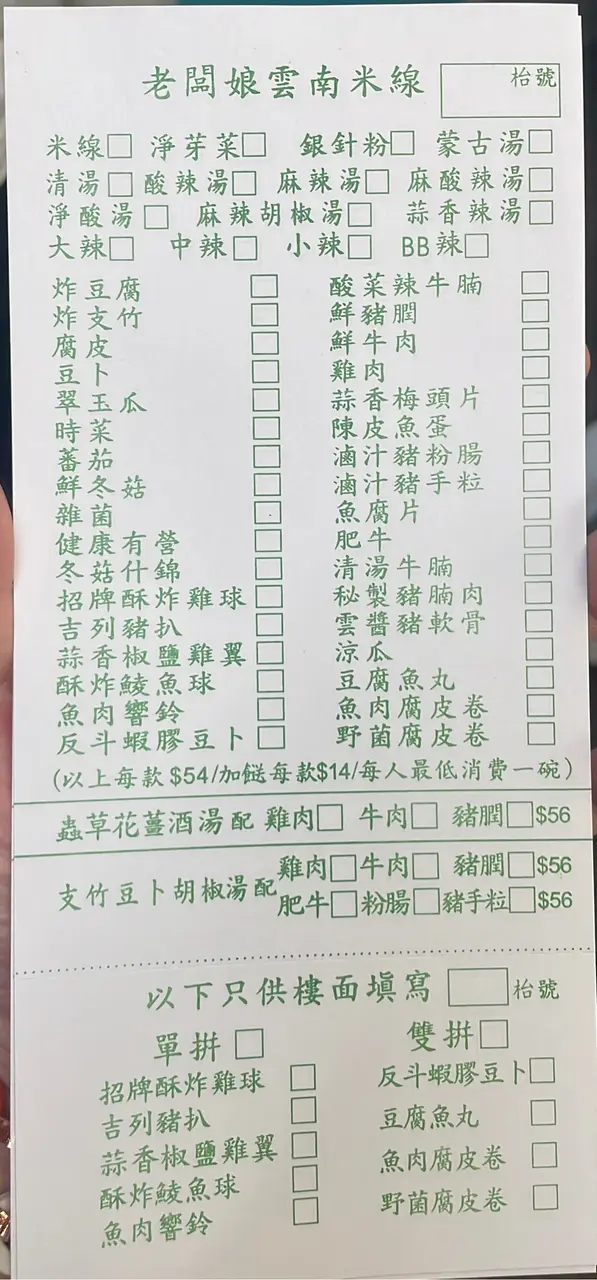 老闆娘雲南米線 枱號
米線□ 淨芽菜□ 銀針粉□ 蒙古湯□
清湯□ 酸辣湯□ 麻辣湯□ 麻酸辣湯□
淨酸湯□ 麻辣胡椒湯□ 蒜香辣湯□
大辣□ 中辣□ 小辣□ BB辣□
炸豆腐□
炸支竹□
腐皮□
豆卜□
翠玉瓜□
時菜□
蕃茄□
鮮冬菇□
雜菌□
健康有營□
冬菇什錦□
招牌酥炸雞球□
吉列豬扒□
蒜香椒鹽雞翼□
酥炸鯪魚球□
魚肉響鈴□
反斗蝦膠豆卜□
酸菜辣牛腩□
鮮豬膶□
鮮牛肉□
雞肉□
蒜香梅頭片□
陳皮魚蛋□
滷汁豬粉腸□
滷汁豬手粒□
魚腐片□
肥牛□
清湯牛腩□
秘製豬腩肉□
雲醬豬軟骨□
涼瓜□
豆腐魚丸□
魚肉腐皮卷□
野菌腐皮卷□
(以上每款$54/加餸每款$14/每人最低消費一碗)
蟲草花薑酒湯配 雞肉□ 牛肉□ 豬膶□$56
支竹豆卜胡椒湯配 雞肉□牛肉□ 豬膶□$56
肥牛□粉腸□豬手粒□$56
以下只供樓面填寫 □枱號
單拼□
招牌酥炸雞球□
吉列豬扒□
蒜香椒鹽雞翼□
酥炸鯪魚球□
魚肉響鈴□
雙拼□
反斗蝦膠豆卜□
豆腐魚丸□
魚肉腐皮卷□
野菌腐皮卷□